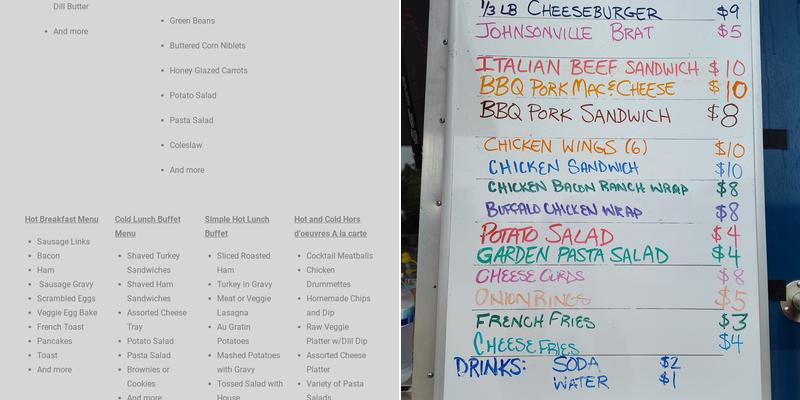 Dill Butter
And more
Green Beans
Buttered Corn Niblets
Honey Glazed Carrots
Potato Salad
Pasta Salad
Coleslaw
And more
Hot Breakfast Menu
Sausage Links
Bacon
Ham
Sausage Gravy
Scrambled Eggs
Veggie Egg Bake
French Toast
Pancakes
Toast
And more
Cold Lunch Buffet
Menu
Shaved Turkey
Sandwiches
Shaved Ham
Sandwiches
Assorted Cheese
Tray
Potato Salad
Pasta Salad
Brownies or
Cookies
And more
Simple Hot Lunch
Buffet
Sliced Roasted
Ham
Turkey in Gravy
Meat or Veggie
Lasagna
Au Gratin
Potatoes
Mashed Potatoes
with Gravy
Tossed Salad with
House
Hot and Cold Hors
d'oeuvres A la carte
Cocktail Meatballs
Chicken
Drummettes
Homemade Chips
and Dip
Raw Veggie
Platter w/Dill Dip
Assorted Cheese
Platter
Variety of Pasta
Salads
1/3 LB CHEESEBURGER $9
JOHNSONVILLE BRAT $5
ITALIAN BEEF SANDWICH $10
BBQ PORK MAC & CHEESE $10
BBQ PORK SANDWICH $8
CHICKEN WINGS (6) $10
CHICKEN SANDWICH $10
CHICKEN BACON RANCH WRAP $8
BUFFALO CHICKEN WRAP $8
POTATO SALAD $4
GARDEN PASTA SALAD $4
CHEESE CURDS $8
ONION RINGS $5
FRENCH FRIES $3
CHEESE FRIES $4
DRINKS: SODA $2
WATER $1